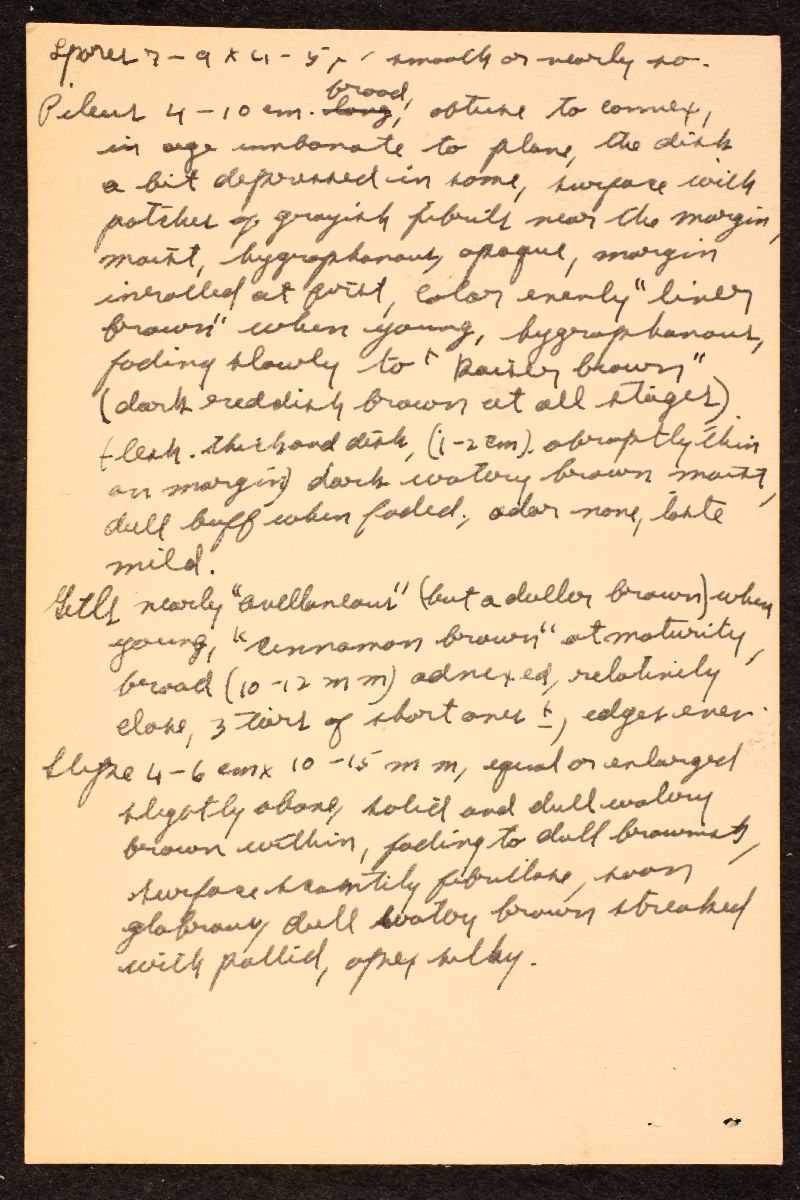 Spores 7-9 x 4-5 μ smooth or nearly so.
Pileus 4-10 cm. long broad, obtuse to convex,
in age umbonate to plane, the disk
a bit depressed in some, surface with
patches of grayish fibrils near the margin,
moist, hygrophanous, opaque, margin
inrolled at first, color evenly "liver
brown" when young, hygrophanous,
fading slowly to "Kaiser brown"
(dark reddish brown at all stages)
flesh thick and disk, (1-2 cm). abruptly thin
on margin) dark watery brown moist,
dull buff when faded, odor none, taste
mild.
Gills nearly "avellaneous" (but a duller brown) when
young, "cinnamon brown" at maturity,
broad (10-12 mm) adnexed, relatively
close, 3 tiers of short ones ±, edges even.
Stipe 4-6 cm x 10-15 mm, equal or enlarged
slightly above, solid and dull watery
brown within, fading to dull brownish,
surface scantily fibrillose, soon
glabrous, dull watery brown streaked
with pallid, apex silky.